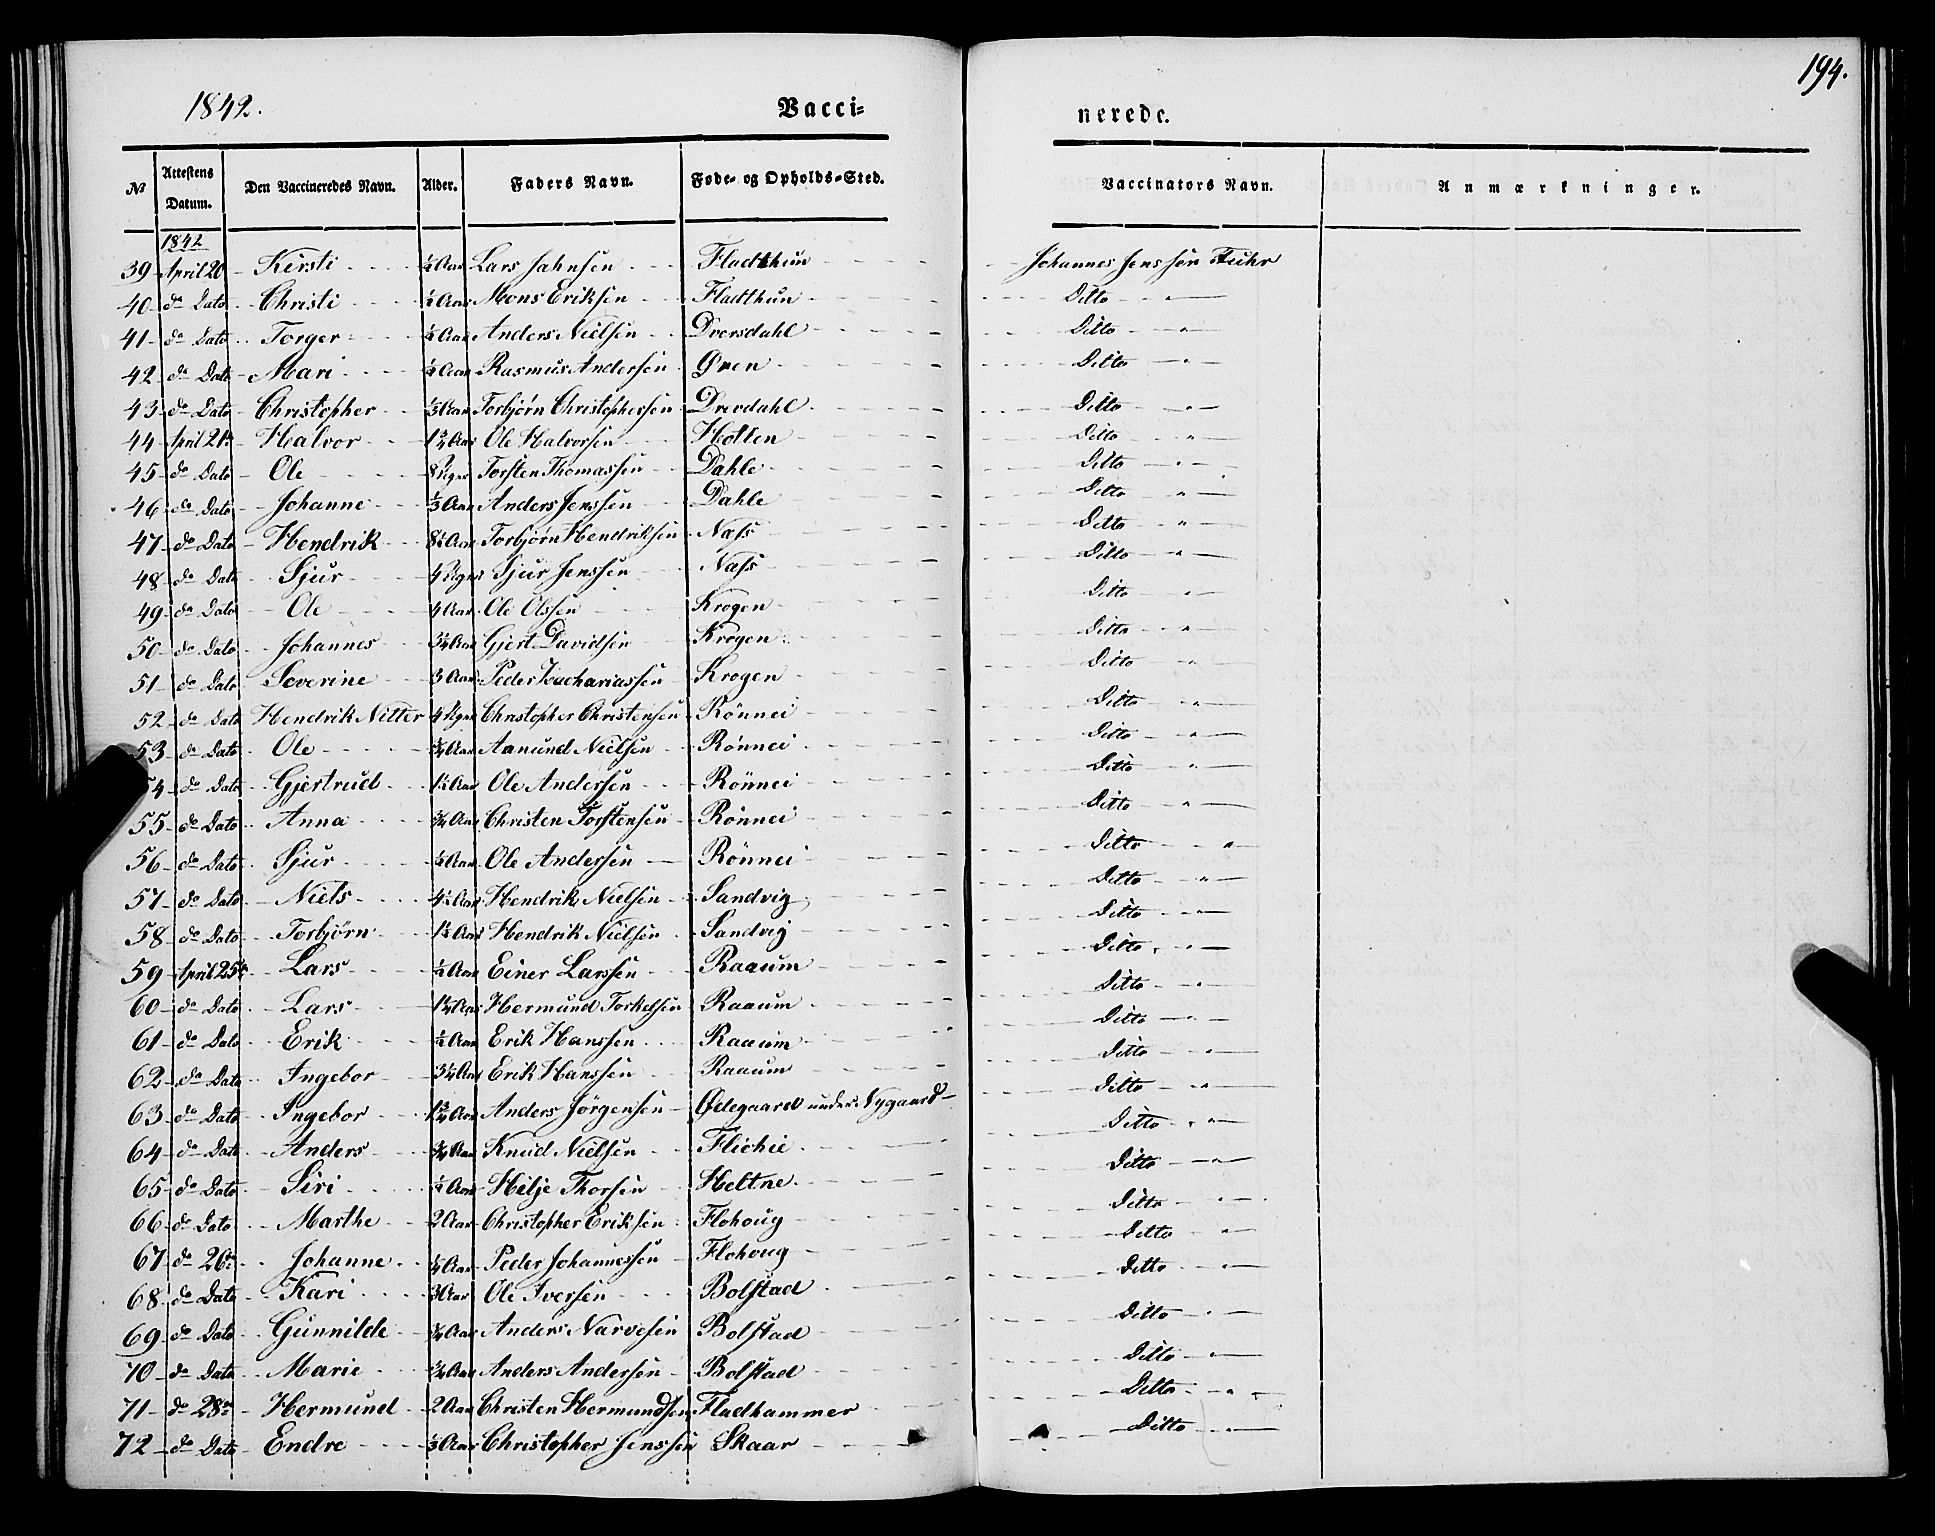 194.
1842. Vacci- nerede.
№ Attestens Datum. Den Vaccineredes Navn. Alder. Faders Navn. Føde- og Opholds-Sted. Vaccinators Navn. Anmærkninger.
1842
39 April 20 Kirsti ½ Aar Lars Jahnsen Fladthun Johannes Jenssen Fuhr
40 do Dato Christi ½ Aar Mons Eriksen Fladthun Ditto "
41 do Dato Torger ½ Aar Anders Nielsen Dversdahl Ditto "
42 do Dato Mari ½ Aar Rasmus Andersen Øren Ditto "
43 do Dato Christopher ½ Aar Torbjørn Christophersen Drevdahl Ditto "
44 April 21de Halvor 1¾ Aar Ole Halvorsen Hotten Ditto "
45 do Dato Ole 8 Uger Torsten Thomassen Dahle Ditto "
46 do Dato Johanne ⅓ Aar Anders Jenssen Dahle Ditto "
47 do Dato Hendrik 8½ Aar Torbjørn Hendriksen Næss Ditto "
48 do Dato Sjur 4 Uger Sjur Jenssen Næss Ditto "
49 do Dato Ole 4 Aar Ole Olssen Krogen Ditto "
50 do Dato Johannes 3½ Aar Gjert Davidsen Krogen Ditto "
51 do Dato Severine 3 Aar Peder Zachariassen Krogen Ditto "
52 do Dato Hendrik Nitter 4 Uger Christopher Christensen Rönnei Ditto "
53 do Dato Ole ¾ Aar Aamund Nielsen Rönnei Ditto "
54 do Dato Gjertrud 1½ Aar Ole Andersen Rönnei Ditto "
55 do Dato Anna ¾ Aar Christen Torstensen Rönnei Ditto "
56 do Dato Sjur ½ Aar Ole Andersen Rönnei Ditto "
57 do Dato Niels 4½ Aar Hendrik Nielsen Sandvig Ditto "
58 do Dato Torbjørn 1½ Aar Hendrik Nielsen Sandvig Ditto "
59 April 25de Lars ½ Aar Einer Larssen Raaum Ditto "
60 do Dato Lars 1¼ Aar Hermund Torkelsen Raaum Ditto "
61 do Dato Erik ½ Aar Erik Hanssen Raaum Ditto "
62 do Dato Ingebor 3¼ Aar Erik Hanssen Raaum Ditto "
63 do Dato Ingebor 1¾ Aar Anders Jörgensen Ødegaard under Nygaard Ditto "
64 do Dato Anders ¾ Aar Knud Nielsen Flichie Ditto "
65 do Dato Siri ½ Aar Hilje Thorsen Heltne Ditto "
66 do Dato Marthe 2 Aar Christopher Eriksen Flohoug Ditto "
67 do 26de Johanne ¼ Aar Peder Johannessen Flohoug Ditto "
68 do Dato Kari 3 Aar Ole Iversen Bolstad Ditto "
69 do Dato Gunnilde ¾ Aar Anders Narvesen Bolstad Ditto "
70 do Dato Marie ¾ Aar Anders Andersen Bolstad Ditto "
71 do 28de Hermund 2 Aar Christen Hermundsen Fladhammer Ditto "
72 do Dato Endre ½ Aar Christopher Jenssen Skaar Ditto "